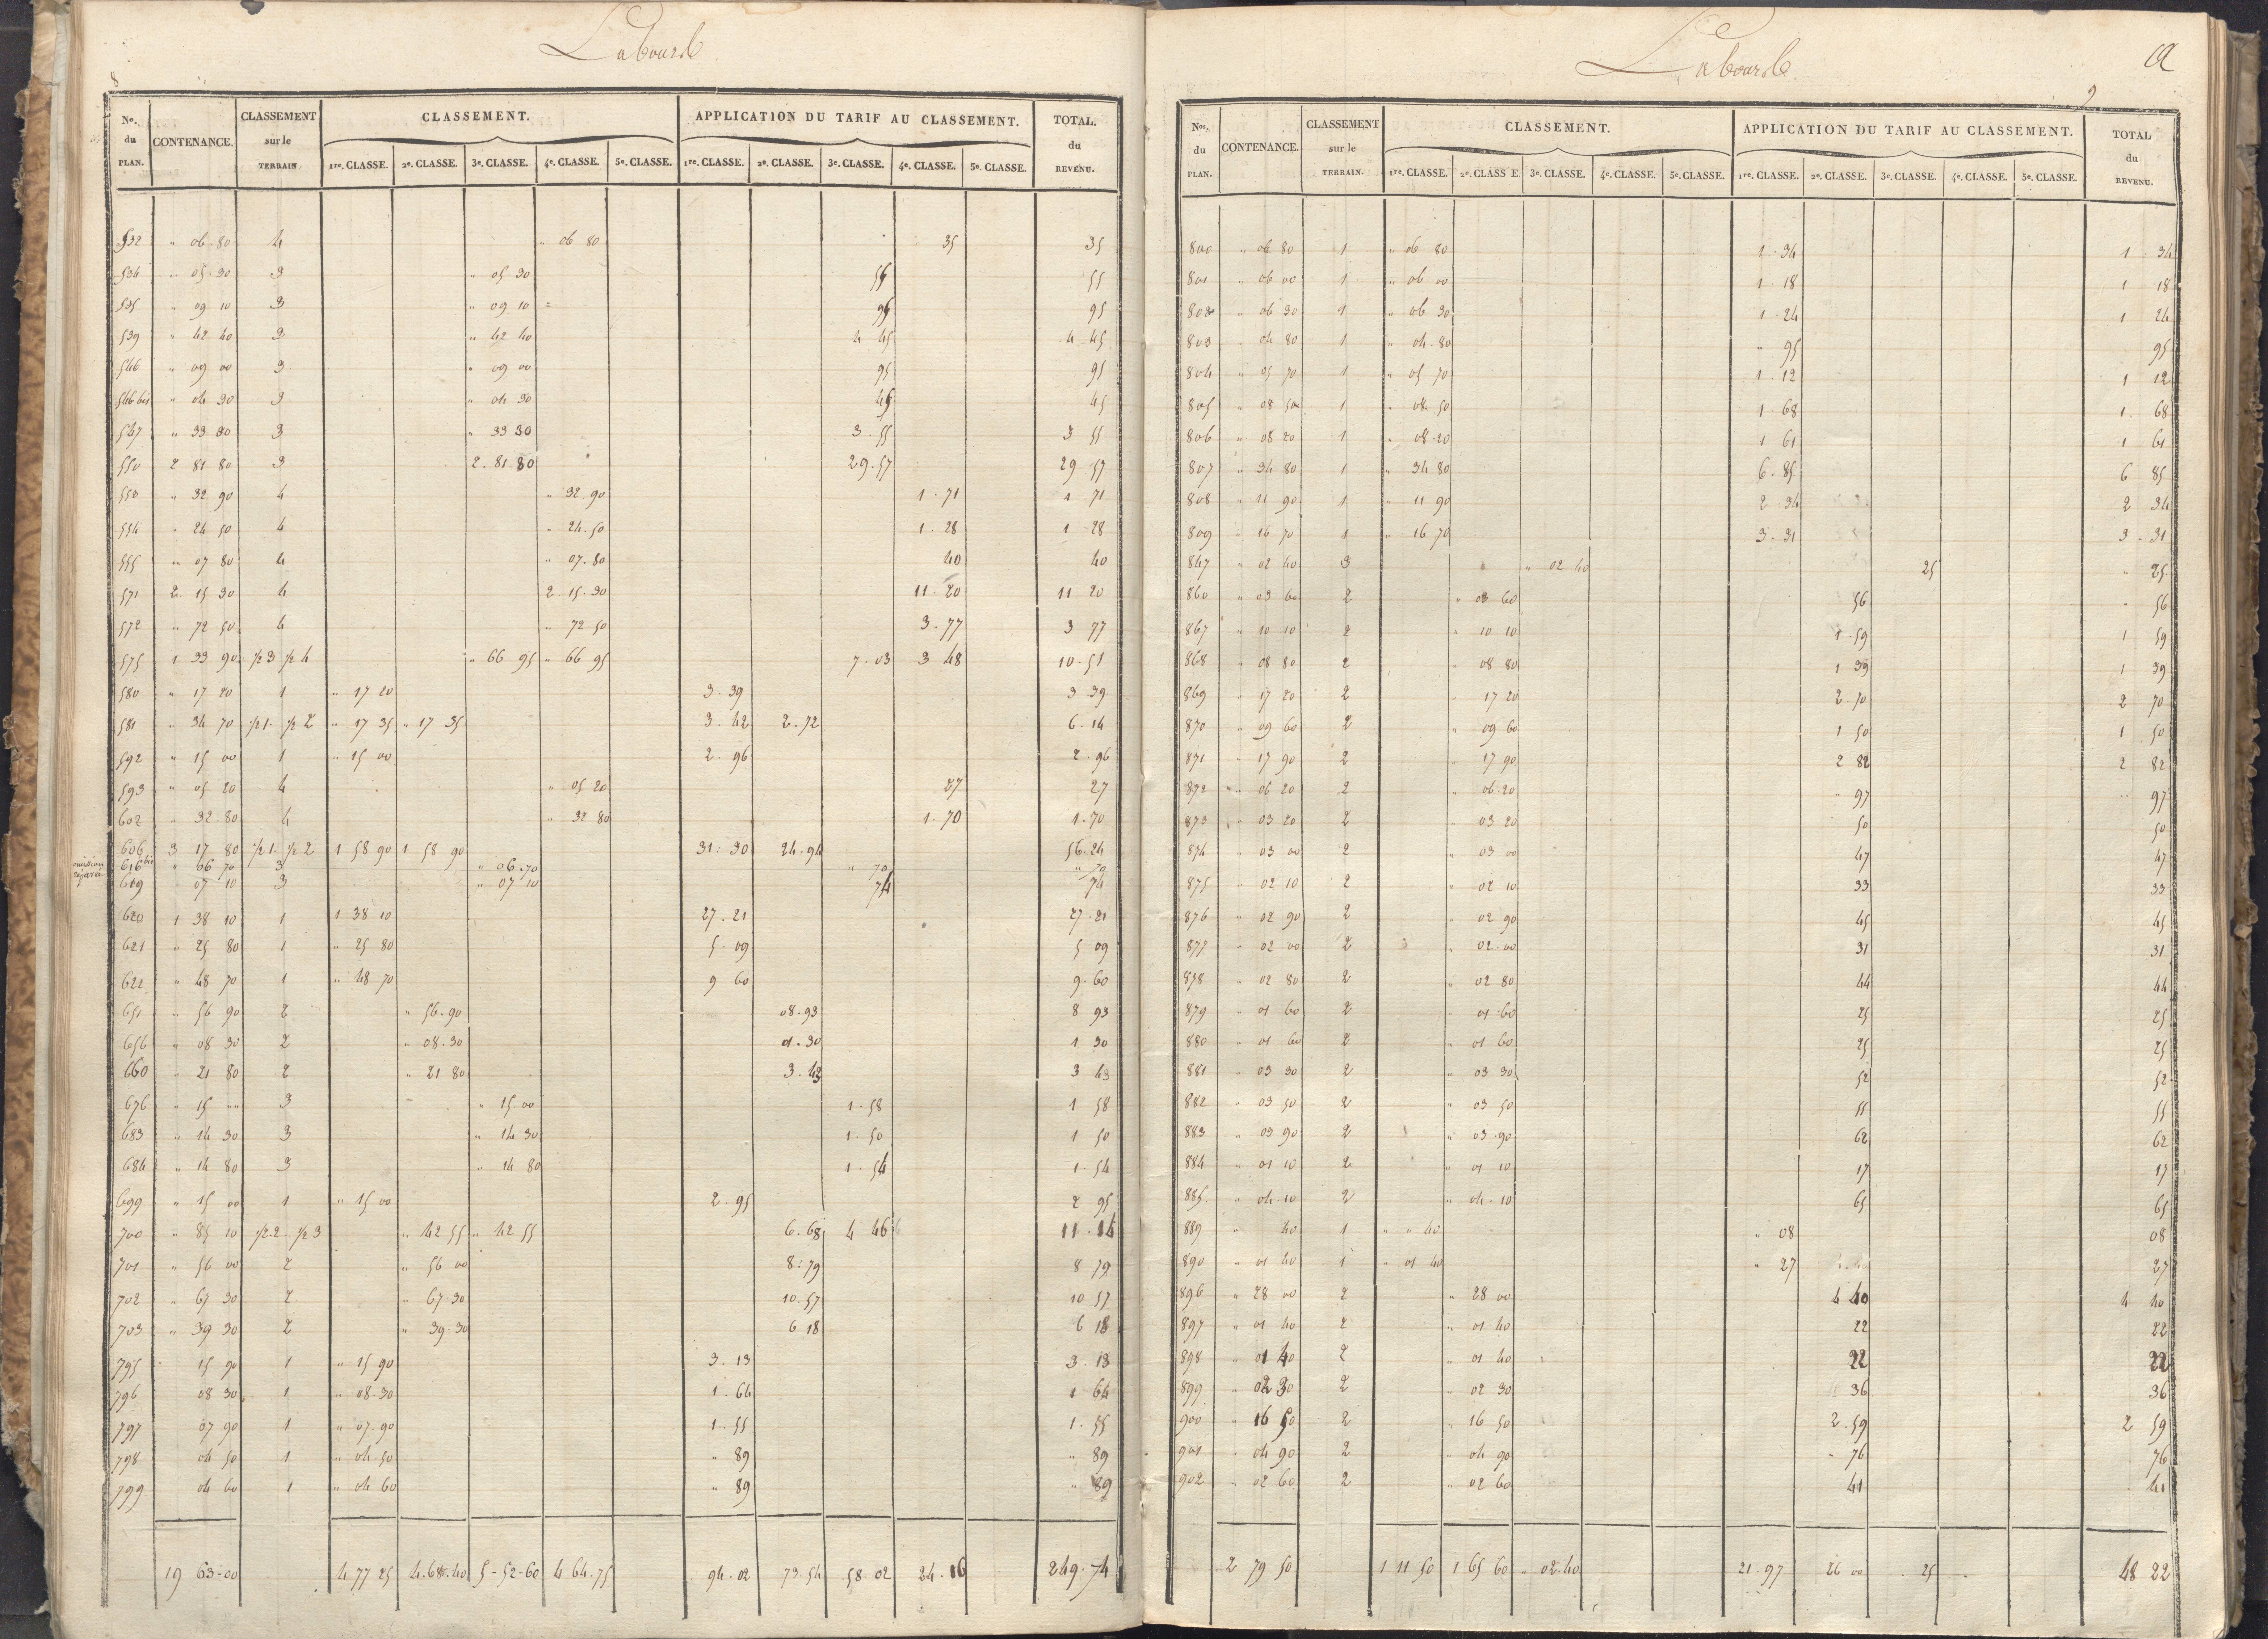 8
Labourable
No. du PLAN. CONTENANCE. CLASSEMENT sur le TERRAIN CLASSEMENT. APPLICATION DU TARIF AU CLASSEMENT. TOTAL. du REVENU.
1re. CLASSE. 2e. CLASSE. 3e. CLASSE. 4e. CLASSE. 5e. CLASSE. 1re. CLASSE. 2e. CLASSE. 3e. CLASSE. 4e. CLASSE. 5e. CLASSE.
532 " 06 80 4 " 06 80 35 35
534 " 05 30 3 " 05 30 55 55
535 " 09 10 3 " 09 10 95 95
539 " 42 40 3 " 42 40 4 45 4 45
546 " 09 00 3 " 09 00 95 95
546 bis " 04 30 3 " 04 30 45 45
547 " 33 80 3 " 33 30 3 . 55 3 55
550 2 81 80 3 2 . 81 80 29 . 57 29 57
553 " 32 90 4 " 32 90 1 . 71 1 71
554 " 24 50 4 " 24 . 50 1 . 28 1 28
555 " 07 80 4 " 07 . 80 40 40
571 2 15 30 4 2 . 15 . 30 11 . 20 11 20
572 " 72 50 4 " 72 . 50 3 . 77 3 77
575 1 33 90 1/2 3 1/2 4 " 66 95 " 66 95 7 . 03 3 48 10 . 51
580 " 17 20 1 " 17 20 3 . 39 3 39
581 " 34 70 1/2 1 . 1/2 2 " 17 35 " 17 35 3 . 42 2 . 72 6 . 14
592 " 15 00 1 " 15 00 2 . 96 2 . 96
593 " 05 20 4 " 05 20 27 27
602 " 32 80 4 " 32 80 1 . 70 1 . 70
606 3 17 80 1/2 1 . 1/2 2 1 58 90 1 58 90 31 . 30 24 . 94 56 . 24
omission réparée 616 bis " 06 70 3 " 06 . 70 " 70 " 70
619 " 07 10 3 " 07 10 74 74
620 1 38 10 1 1 38 10 27 . 21 27 . 21
621 " 25 80 1 " 25 80 5 . 09 5 09
622 " 48 70 1 " 48 70 9 60 9 . 60
651 " 56 90 2 " 56 . 90 08 . 93 8 93
656 " 08 30 2 " 08 . 30 01 . 30 1 30
660 " 21 80 2 " 21 80 3 . 43 3 43
676 " 15 " 3 " 15 . 00 1 . 58 1 58
683 " 14 30 3 " 14 . 30 1 . 50 1 50
684 " 14 80 3 " 14 80 1 . 54 1 . 54
699 " 15 00 1 " 15 00 2 . 95 2 95
700 " 85 10 1/2 2 . 1/2 3 " 42 55 " 42 55 6 . 68 4 46 11 . 14
701 " 56 00 2 " 56 00 8 . 79 8 79
702 " 67 30 2 " 67 . 30 10 . 57 10 57
703 " 39 30 2 " 39 30 6 18 6 18
795 15 90 1 " 15 90 3 . 13 3 . 13
796 08 30 1 " 08 . 30 1 . 64 1 64
797 07 90 1 " 07 . 90 1 . 55 1 . 55
798 04 50 1 " 04 . 50 " 89 " 89
799 04 60 1 " 04 60 " 89 " 89
19 63 00 4 77 25 4 . 68 . 40 5 - 52 - 60 4 64 . 75 94 . 02 73 . 54 58 02 24 . 16 249 . 74
Labourable
9
Nos. du PLAN. CONTENANCE. CLASSEMENT sur le TERRAIN. CLASSEMENT. APPLICATION DU TARIF AU CLASSEMENT. TOTAL du REVENU.
1re. CLASSE. 2e. CLASS E. 3e. CLASSE. 4e. CLASSE. 5e. CLASSE. 1re. CLASSE. 2e. CLASSE. 3e. CLASSE. 4e. CLASSE. 5e. CLASSE.
800 " 06 80 1 " 06 80 1 . 34 1 34
801 " 06 00 1 " 06 00 1 . 18 1 18
802 " 06 30 1 " 06 30 1 . 24 1 24
803 " 04 80 1 " 04 . 80 " 95 95
804 " 05 70 1 " 05 70 1 . 12 1 12
805 " 08 50 1 " 08 . 50 1 . 68 1 . 68
806 " 08 20 1 " 08 . 20 1 61 1 61
807 " 34 80 1 " 34 80 6 . 85 6 85
808 " 11 90 1 " 11 90 2 . 34 2 34
809 " 16 70 1 " 16 70 3 . 31 3 . 31
847 " 02 40 3 " 02 40 25 " 25
860 " 03 60 2 " 03 60 56 " 56
867 " 10 10 2 " 10 10 1 . 59 1 59
868 " 08 80 2 " 08 80 1 39 1 39
869 " 17 20 2 " 17 20 2 . 70 2 70
870 " 09 60 2 " 09 60 1 50 1 50
871 " 17 90 2 " 17 90 2 82 2 82
872 " 06 20 2 " 06 . 20 " 97 " 97
873 " 03 20 2 " 03 20 50 50
874 " 03 00 2 " 03 00 47 47
875 " 02 10 2 " 02 10 33 33
876 " 02 90 2 " 02 90 45 45
877 " 02 00 2 " 02 . 00 31 31
878 " 02 80 2 " 02 80 44 44
879 " 01 60 2 " 01 . 60 25 25
880 " 01 60 2 " 01 60 25 25
881 " 03 30 2 " 03 30 52 52
882 " 03 50 2 " 03 50 55 55
883 " 03 90 2 " 03 . 90 62 62
884 " 01 10 2 " 01 10 17 17
885 " 04 10 2 " 04 . 10 65 65
889 " 40 1 " " 40 " 08 08
890 " 01 40 1 " 01 40 " 27 27
896 " 28 00 2 " 28 00 4 40 4 40
897 " 01 40 2 " 01 40 22 22
898 " 01 40 2 " 01 40 22 22
899 " 02 30 2 " 02 30 36 36
900 " 16 50 2 " 16 50 2 . 59 2 59
901 " 04 90 2 " 04 90 " 76 76
902 " 02 60 2 " 02 60 41 41
2 79 50 1 11 50 1 65 60 " 02 . 40 21 . 97 26 00 25 48 22